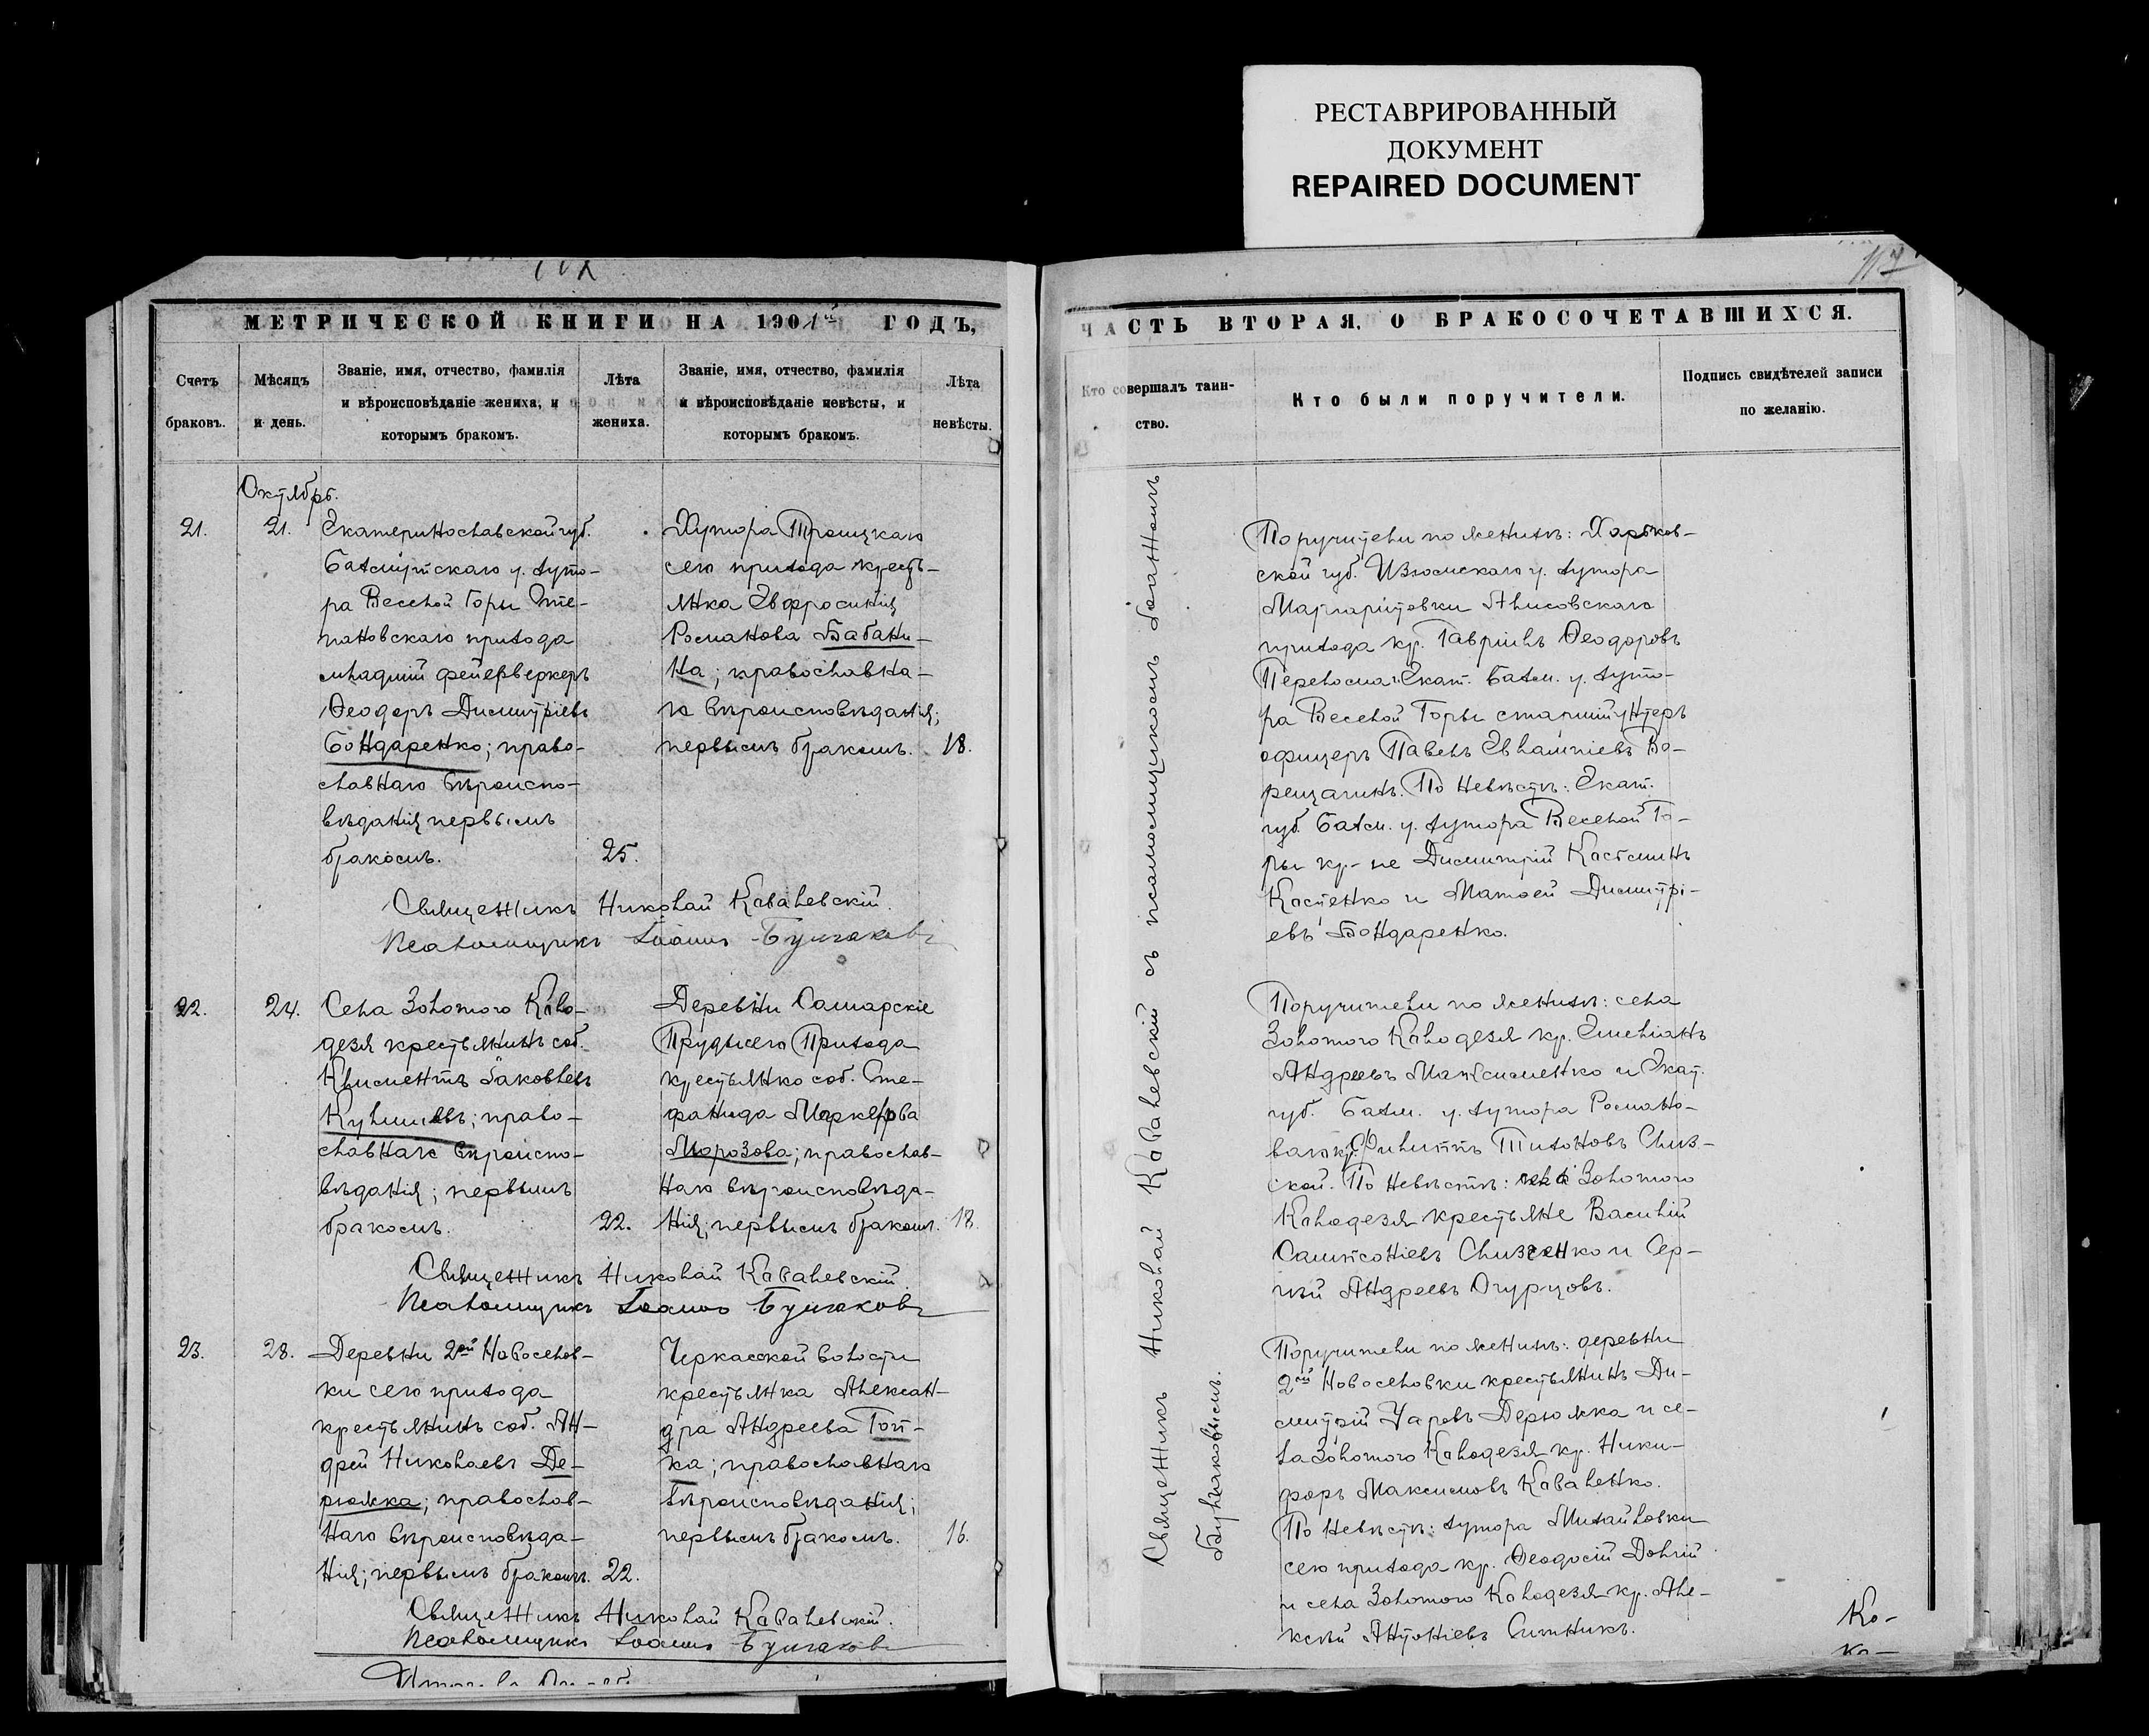 РЕСТАВРИРОВАННЫЙ
ДОКУМЕНТ
REPAIRED DOCUMENT
117
МЕТРИЧЕСКОЙ КНИГИ НА 1901й ГОДЪ,
Счетъ
браковъ.
Мѣсяцъ
и день.
Званіе, имя, отчество, фамилія
и вѣроисповѣданіе жениха, и
которымъ бракомъ.
Лѣта
жениха.
Званіе, имя, отчество, фамилія
и вѣроисповѣданіе невѣсты, и
которымъ бракомъ.
Лѣта
невѣсты.
Октябрь.
21.
21.
Екатеринославской губ.
Бахмутскаго у. хуто-
ра Веселой Горы Сте-
пановскаго прихода
младшій фейерверкеръ
Ѳеодоръ Димитріевъ
Бондаренко; право-
славнаго вѣроиспо-
вѣданія первымъ
бракомъ.
25.
Хутора Троицкаго
сего прихода кресть-
янка Евфросинія
Романова Бабани-
на; православна-
го вѣроисповѣданія;
первымъ бракомъ.
18.
Священникъ Николай Ковалевскій.
Псаломщикъ Іоаннъ Булгаковъ
22.
24.
Села Золотого Коло-
дезя крестьянинъ соб.
Климентъ Іаковлевъ
Кулишевъ; право-
славнаго вѣроиспо-
вѣданія; первымъ
бракомъ.
22.
Деревни Самарскіе
Пруды сего Прихода
крестьянко соб. Сте-
фанида Маркелова
Морозова; православ-
наго вѣроисповѣда-
нія; первымъ бракомъ.
18.
Священникъ Николай Ковалевскій.
Псаломщикъ Іоаннъ Булгаковъ
23.
28.
Деревни 2ой Новоселов-
ки сего прихода
крестьянинъ соб. Ан-
дрей Николаевъ Де-
рюжка; православ-
наго вѣроисповѣда-
нія; первымъ бракомъ.
22.
Черкасской волости
крестьянка Алексан-
дра Андреева Гоп-
ка; православнаго
вѣроисповѣданія;
первымъ бракомъ.
16.
Священникъ Николай Ковалевскій.
Псаломщикъ Іоаннъ Булгаковъ
ЧАСТЬ ВТОРАЯ, О БРАКОСОЧЕТАВШИХСЯ.
Кто совершалъ таин-
ство.
Кто были поручители.
Подпись свидѣтелей записи
по желанію.
Священникъ Николай Ковалевскій съ псаломщикомъ Іоанномъ
Булгаковымъ.
Поручители по женихѣ: Харьков-
ской губ. Изюмскаго у. хутора
Маргаритовки Алисовскаго
прихода кр. Гавріилъ Ѳеодоровъ
Екат. Бахм. у. хуто-
ра Веселой Горы старшій унтеръ
офицеръ Павелъ Евлампіевъ Во-
рещагинъ. По невѣстѣ: Екат.
губ. Бахм. у. хутора Веселой Го-
ры кр-не Димитрій Косминъ
Костенко и Матѳей Димитрі-
евъ Бондаренко.
Поручители по женихѣ: села
Золотого Колодезя кр. Емеліанъ
Андреевъ Максименко и Екат.
губ. Бахм. у. хутора Романо-
Филиппъ Тихоновъ Слиз-
ской. По невѣстѣ: села Золотого
Колодезя крестьяне Василій
Сампсоніевъ Слизченко и Сер-
гій Андреевъ Огурцовъ.
Поручители по женихѣ: деревни
2ой Новоселовки крестьянинъ Ди-
митрій Уаровъ Дерюжка и се-
ла Золотого Колодезя кр. Ники-
форъ Максимовъ Коваленко.
По невѣстѣ: хутора Михайловки
сего прихода кр. Ѳеодосій Долгій
и села Золотого Колодезя кр. Але-
ксѣй Антоніевъ Ситникъ.
Ко-